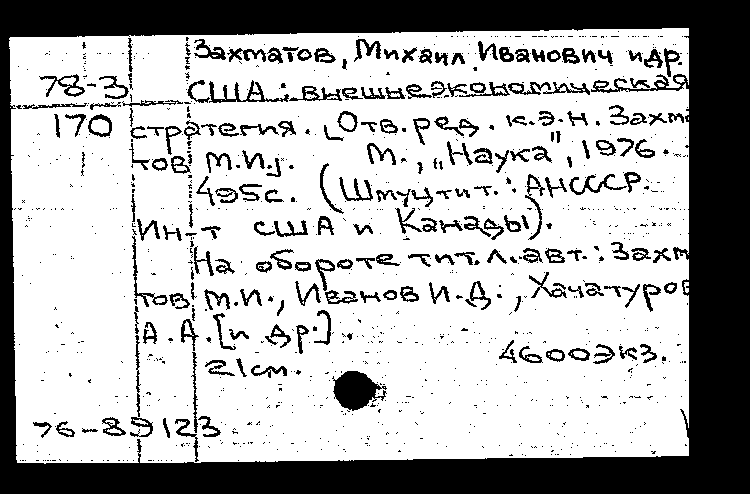 Захматов, Михаил Иванович и др.
78-3 США : внешнеэкономическая
170 стратегия. [Отв. ред. к.э.н. Захма
тов М.И]. М., „Наука", 1976.
495с. (Шмуцтит.: АНСССР.
Ин-т США и Канады).
На обороте тит.л. авт.: Захм
тов М.И., Иванов И.Д., Хачатуров
А.А. [и др.].
21см. 4600экз.
76-89123